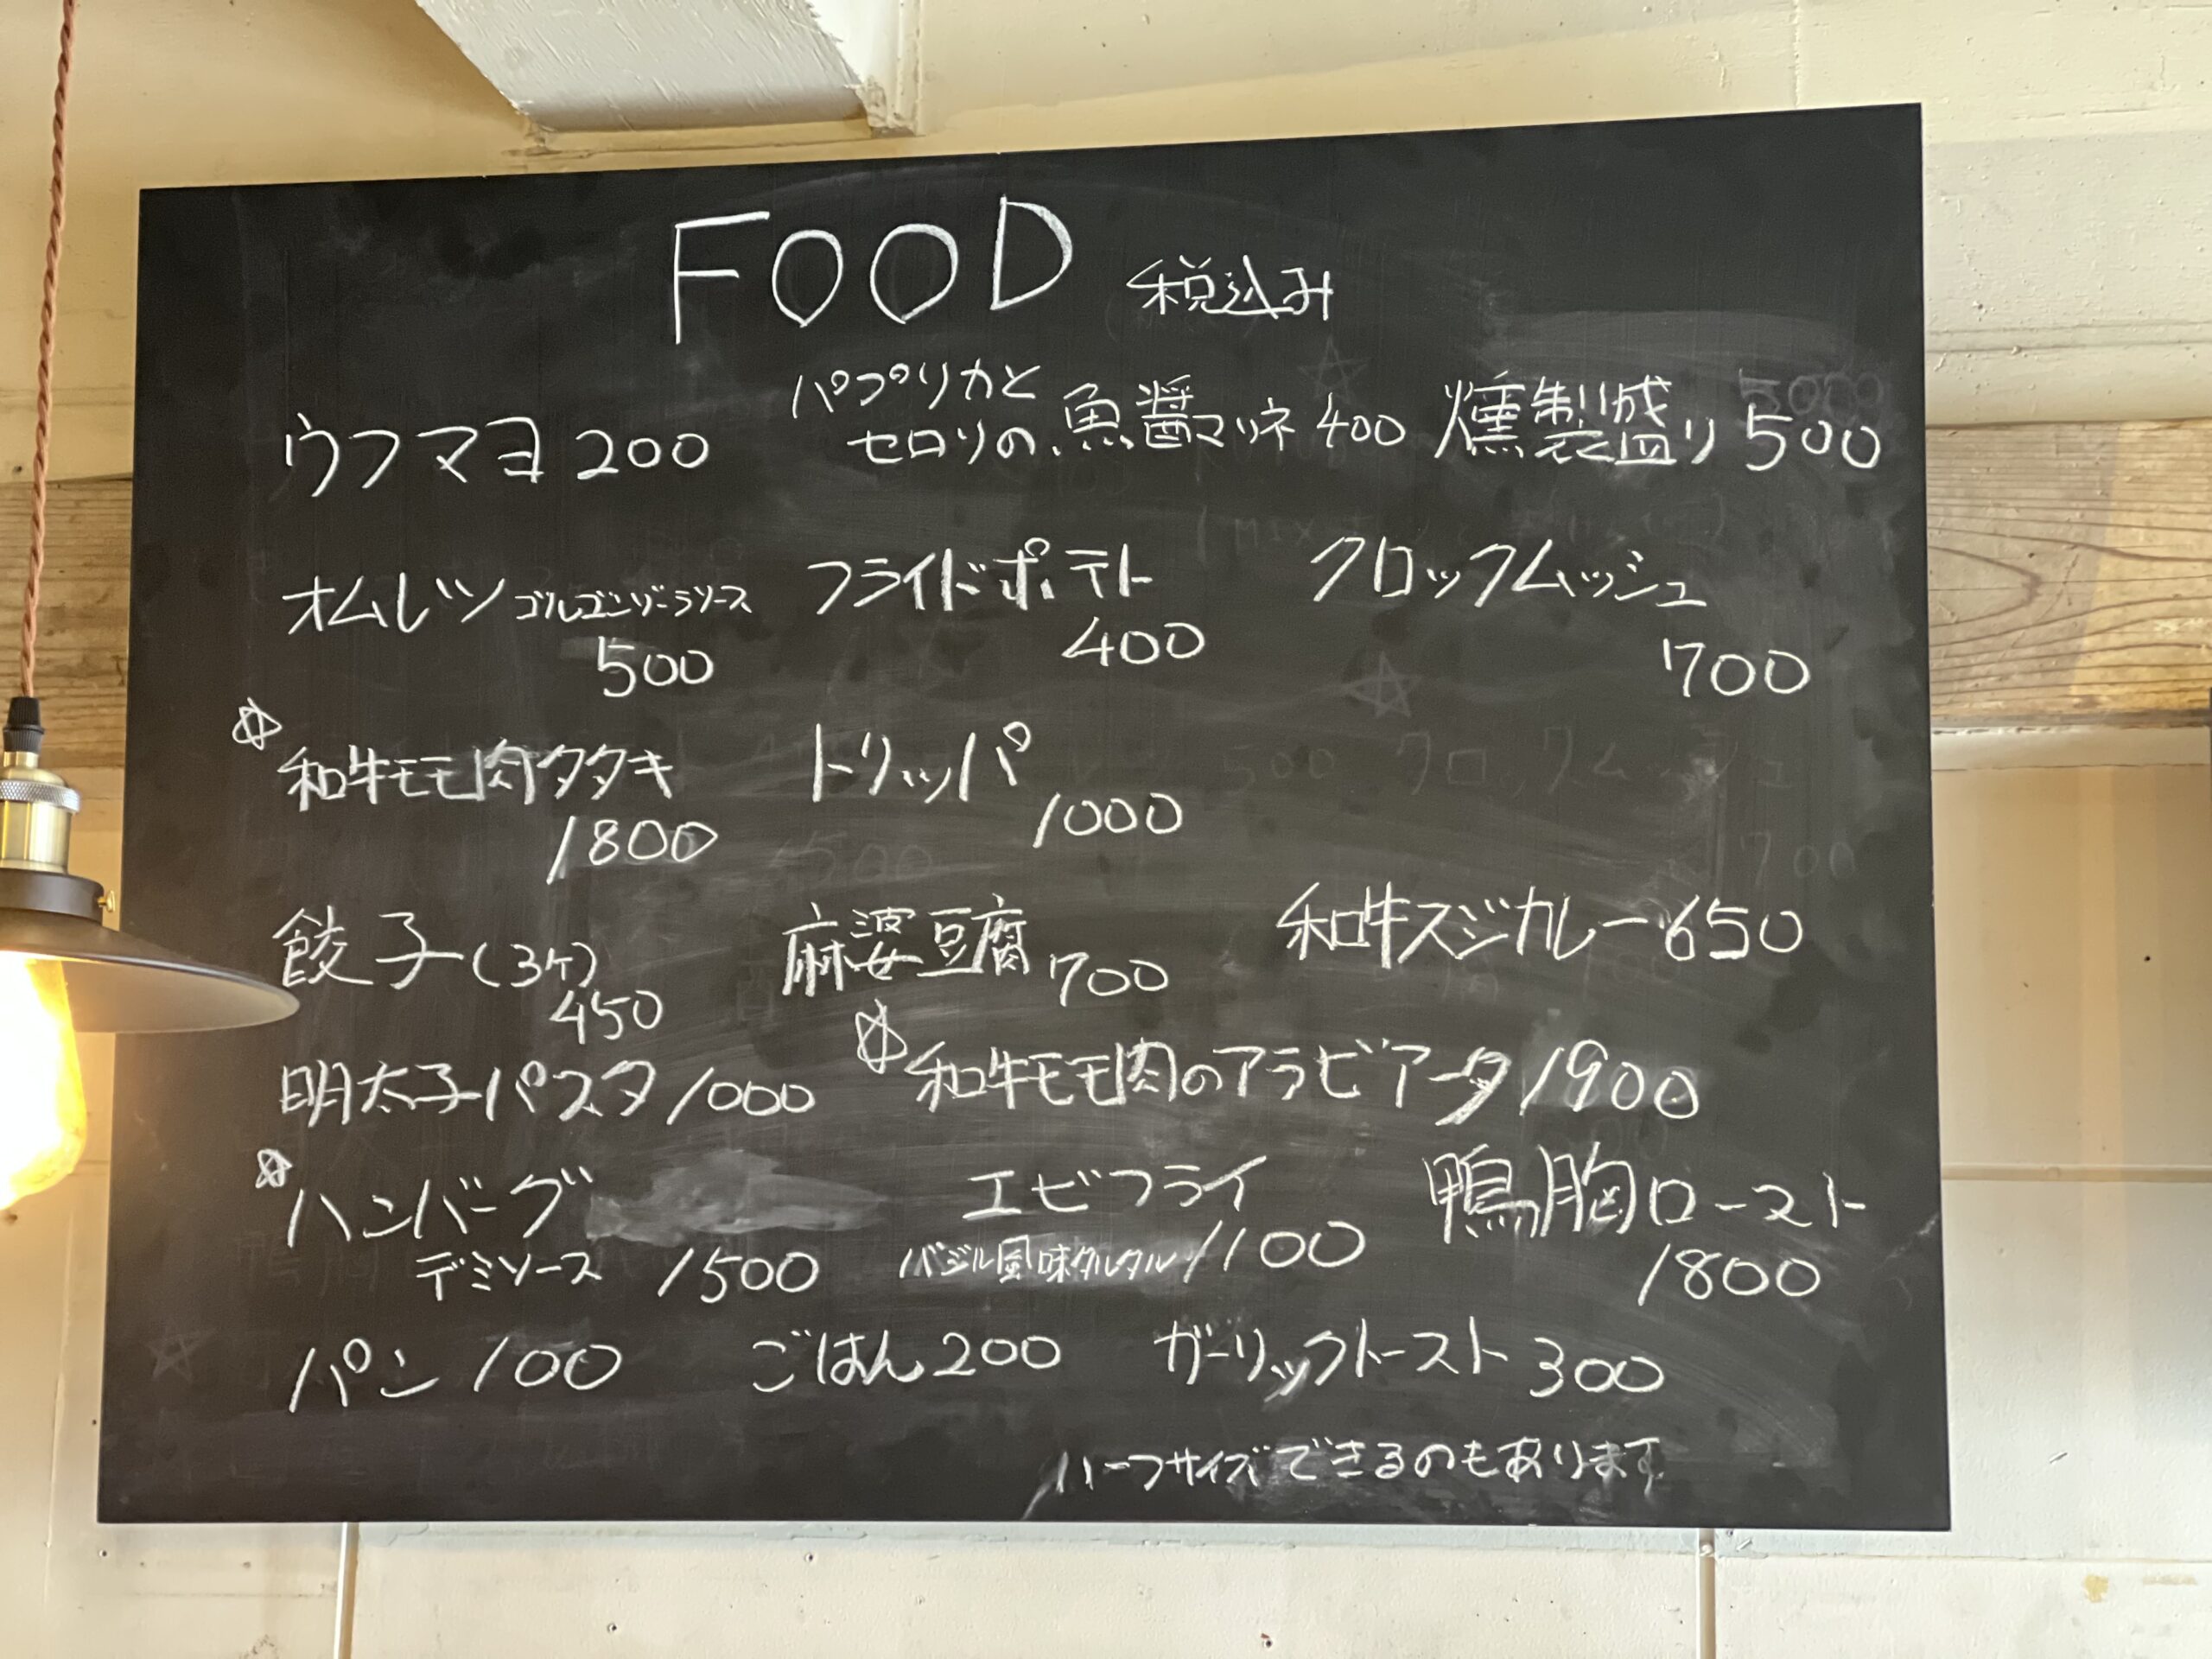 FOOD 税込み
ウフマヨ 200
パプリカと
セロリの魚醤マリネ 400
燻製盛り 500
オムレツ ゴルゴンゾーラソース
500
フライドポテト
400
クロックムッシュ
700
☆和牛モモ肉タタキ
1800
トリッパ
1000
餃子(3ケ)
450
麻婆豆腐 700
和牛スジカレー 650
明太子パスタ 1000
☆和牛モモ肉のアラビアータ 1900
☆ハンバーグ
デミソース 1500
エビフライ
バジル風味タルタル 1100
鴨胸ロースト
1800
パン 100
ごはん 200
ガーリックトースト 300
ハーフサイズできるのもあります